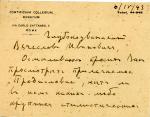 PONTIFICIUM COLLEGIUM
RUSSICUM
VIA CARLO CATTANEO, 2
ROMA
Глубокоуважаемый
Вячеслав Иванович,
просмотреть прилагаемое
Предисловие, нет ли
в нем каких-либо
крупных стилистических